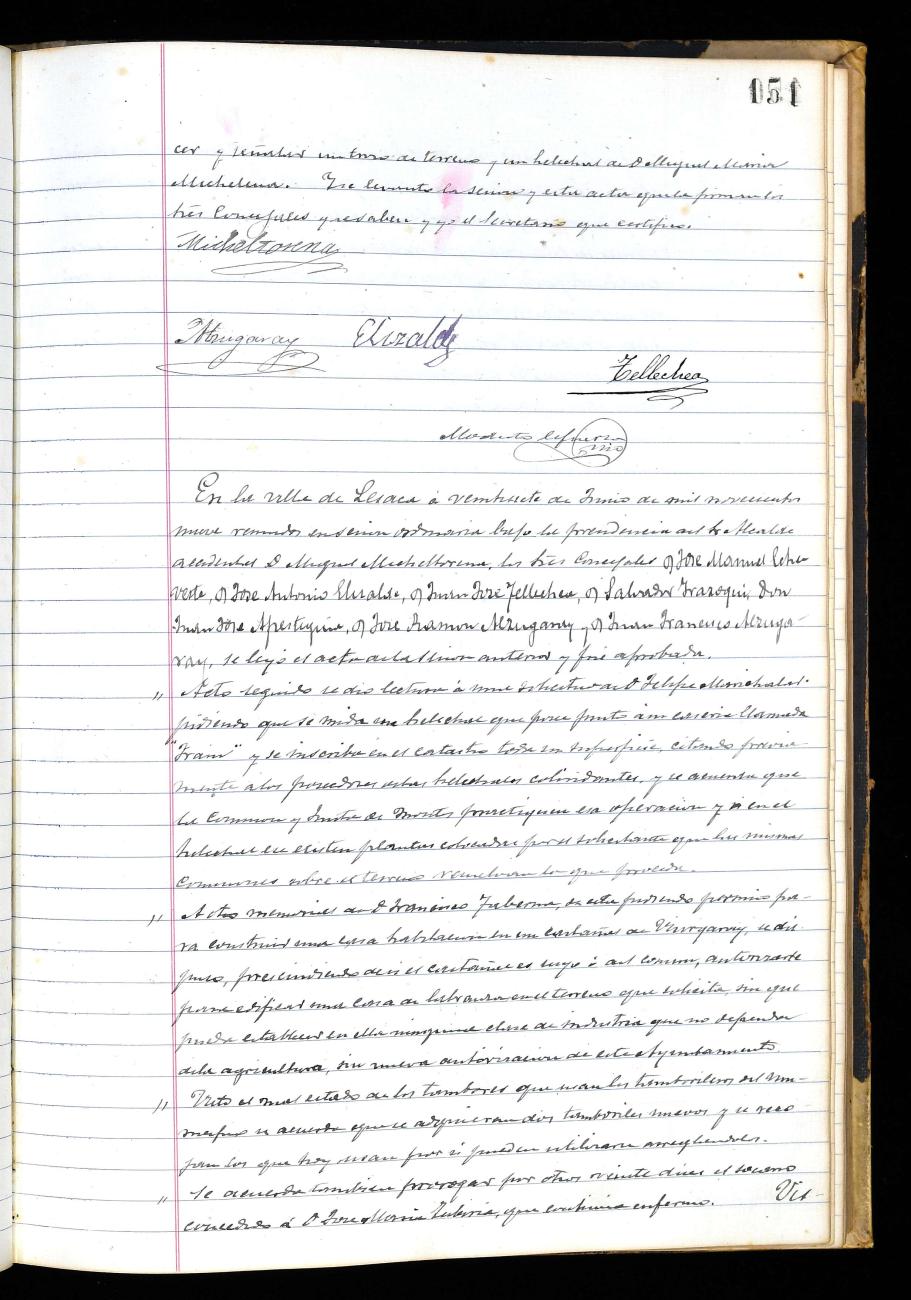 051
cer y señalar un trozo de terreno y un helechal de D Miguel Maria
Michelena. Y se levantó la sesion y esta acta que la firman los
tres Concejales que saben y yo el Secretario que certifico.
Micheltorena
Alzugaray Elizalde
Tellechea
Modesto
En la villa de Lesaca á veintisiete de Junio de mil novecientos
nueve reunidos en sesion ordinaria bajo la presidencia del Sr Alcalde
accidental D Miguel Micheltorena, los tres Concejales D Jose Manuel Eche
verte, D Jose Antonio Elizalde, D Juan José Tellechea, D Salvador Irazoqui, Don
Juan Jose Apesteguia, D Jose Ramon Alzugaray y D Juan Francisco Alzuga-
ray, se leyó el acta de la sesion anterior y fué aprobada.
" Acto seguido se dio lectura á una solicitud de D Felipe Marichalar
pidiendo que se mida un helechal que posee junto á su caseria llamada
"Irain" y se inscriba en el catastro toda su superficie, citando previa-
mente á los poseedores de los helechales colindantes, y se acuerda que
la Comision y Junta de Montes practiquen esa operacion y si en el
helechal ese existen plantas colocadas por el solicitante que las mismas
comisiones sobre el terreno resuelvan lo que proceda.
" A otro memorial de D Francisco Taberna, en este pidiendo permiso pa-
ra construir una casa habitacion en un castañal de Vizcgaray, se dis-
puso, prescindiendo de si el castañal es suyo ó del comun, autorizarle
para edificar una casa de labranza en el terreno que solicita, sin que
pueda establecer en ella ninguna clase de industria que no dependa
de la agricultura, sin nueva autorizacion de este Ayuntamiento.
" Visto el mal estado de los tambores que usan los tamborileros del mu-
nicipio se acuerda que se adquieran dos tamboriles nuevos y se reco
jan los que hoy usan por si pueden utilizarse arreglandolos.
" Se acuerda tambien prorrogar por otros veinte dias el socorro
concedido á D Jose Maria Zubiria, que continúa enfermo. Vis-